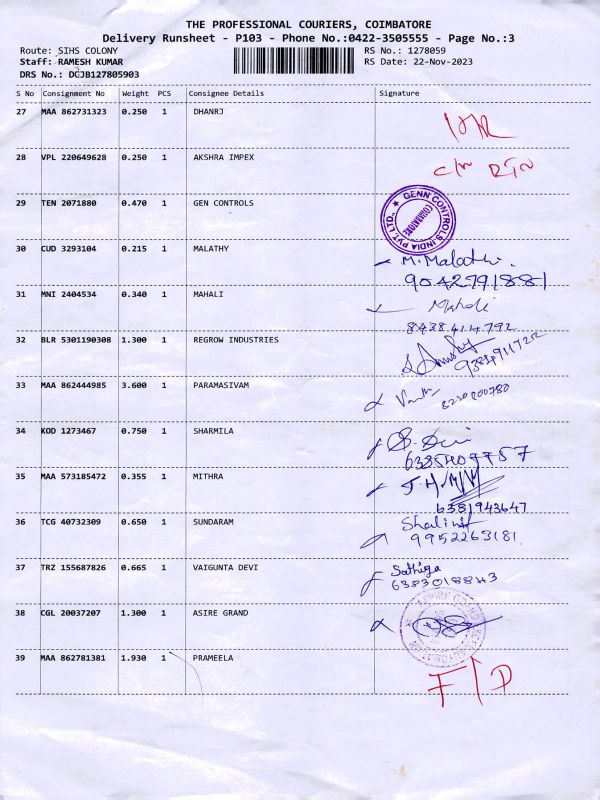 THE PROFESSIONAL COURIERS, COIMBATORE
Delivery Runsheet - P103 - Phone No.:0422-3505555 - Page No.:3
Route: SIHS COLONY RS No.: 1278059
Staff: RAMESH KUMAR RS Date: 22-Nov-2023
DRS No.: DCJB127805903
S No Consignment No Weight PCS Consignee Details Signature
27 MAA 862731323 0.250 1 DHANRJ
28 VPL 220649628 0.250 1 AKSHRA IMPEX
29 TEN 2071880 0.470 1 GEN CONTROLS GENN CONTROLS INDIA PVT. LTD. COIMBATORE
30 CUD 3293104 0.215 1 MALATHY M. Malathi.
9042791881
31 MNI 2404534 0.340 1 MAHALI Mahali
8438414792
32 BLR 5301190308 1.300 1 REGROW INDUSTRIES
33 MAA 862444985 3.600 1 PARAMASIVAM
34 KOD 1273467 0.750 1 SHARMILA
35 MAA 573185472 0.355 1 MITHRA
6381943647
36 TCG 40732309 0.650 1 SUNDARAM Shalini
9952263181
37 TRZ 155687826 0.665 1 VAIGUNTA DEVI Sathiya
6383018843
38 CGL 20037207 1.300 1 ASIRE GRAND
39 MAA 862781381 1.930 1 PRAMEELA